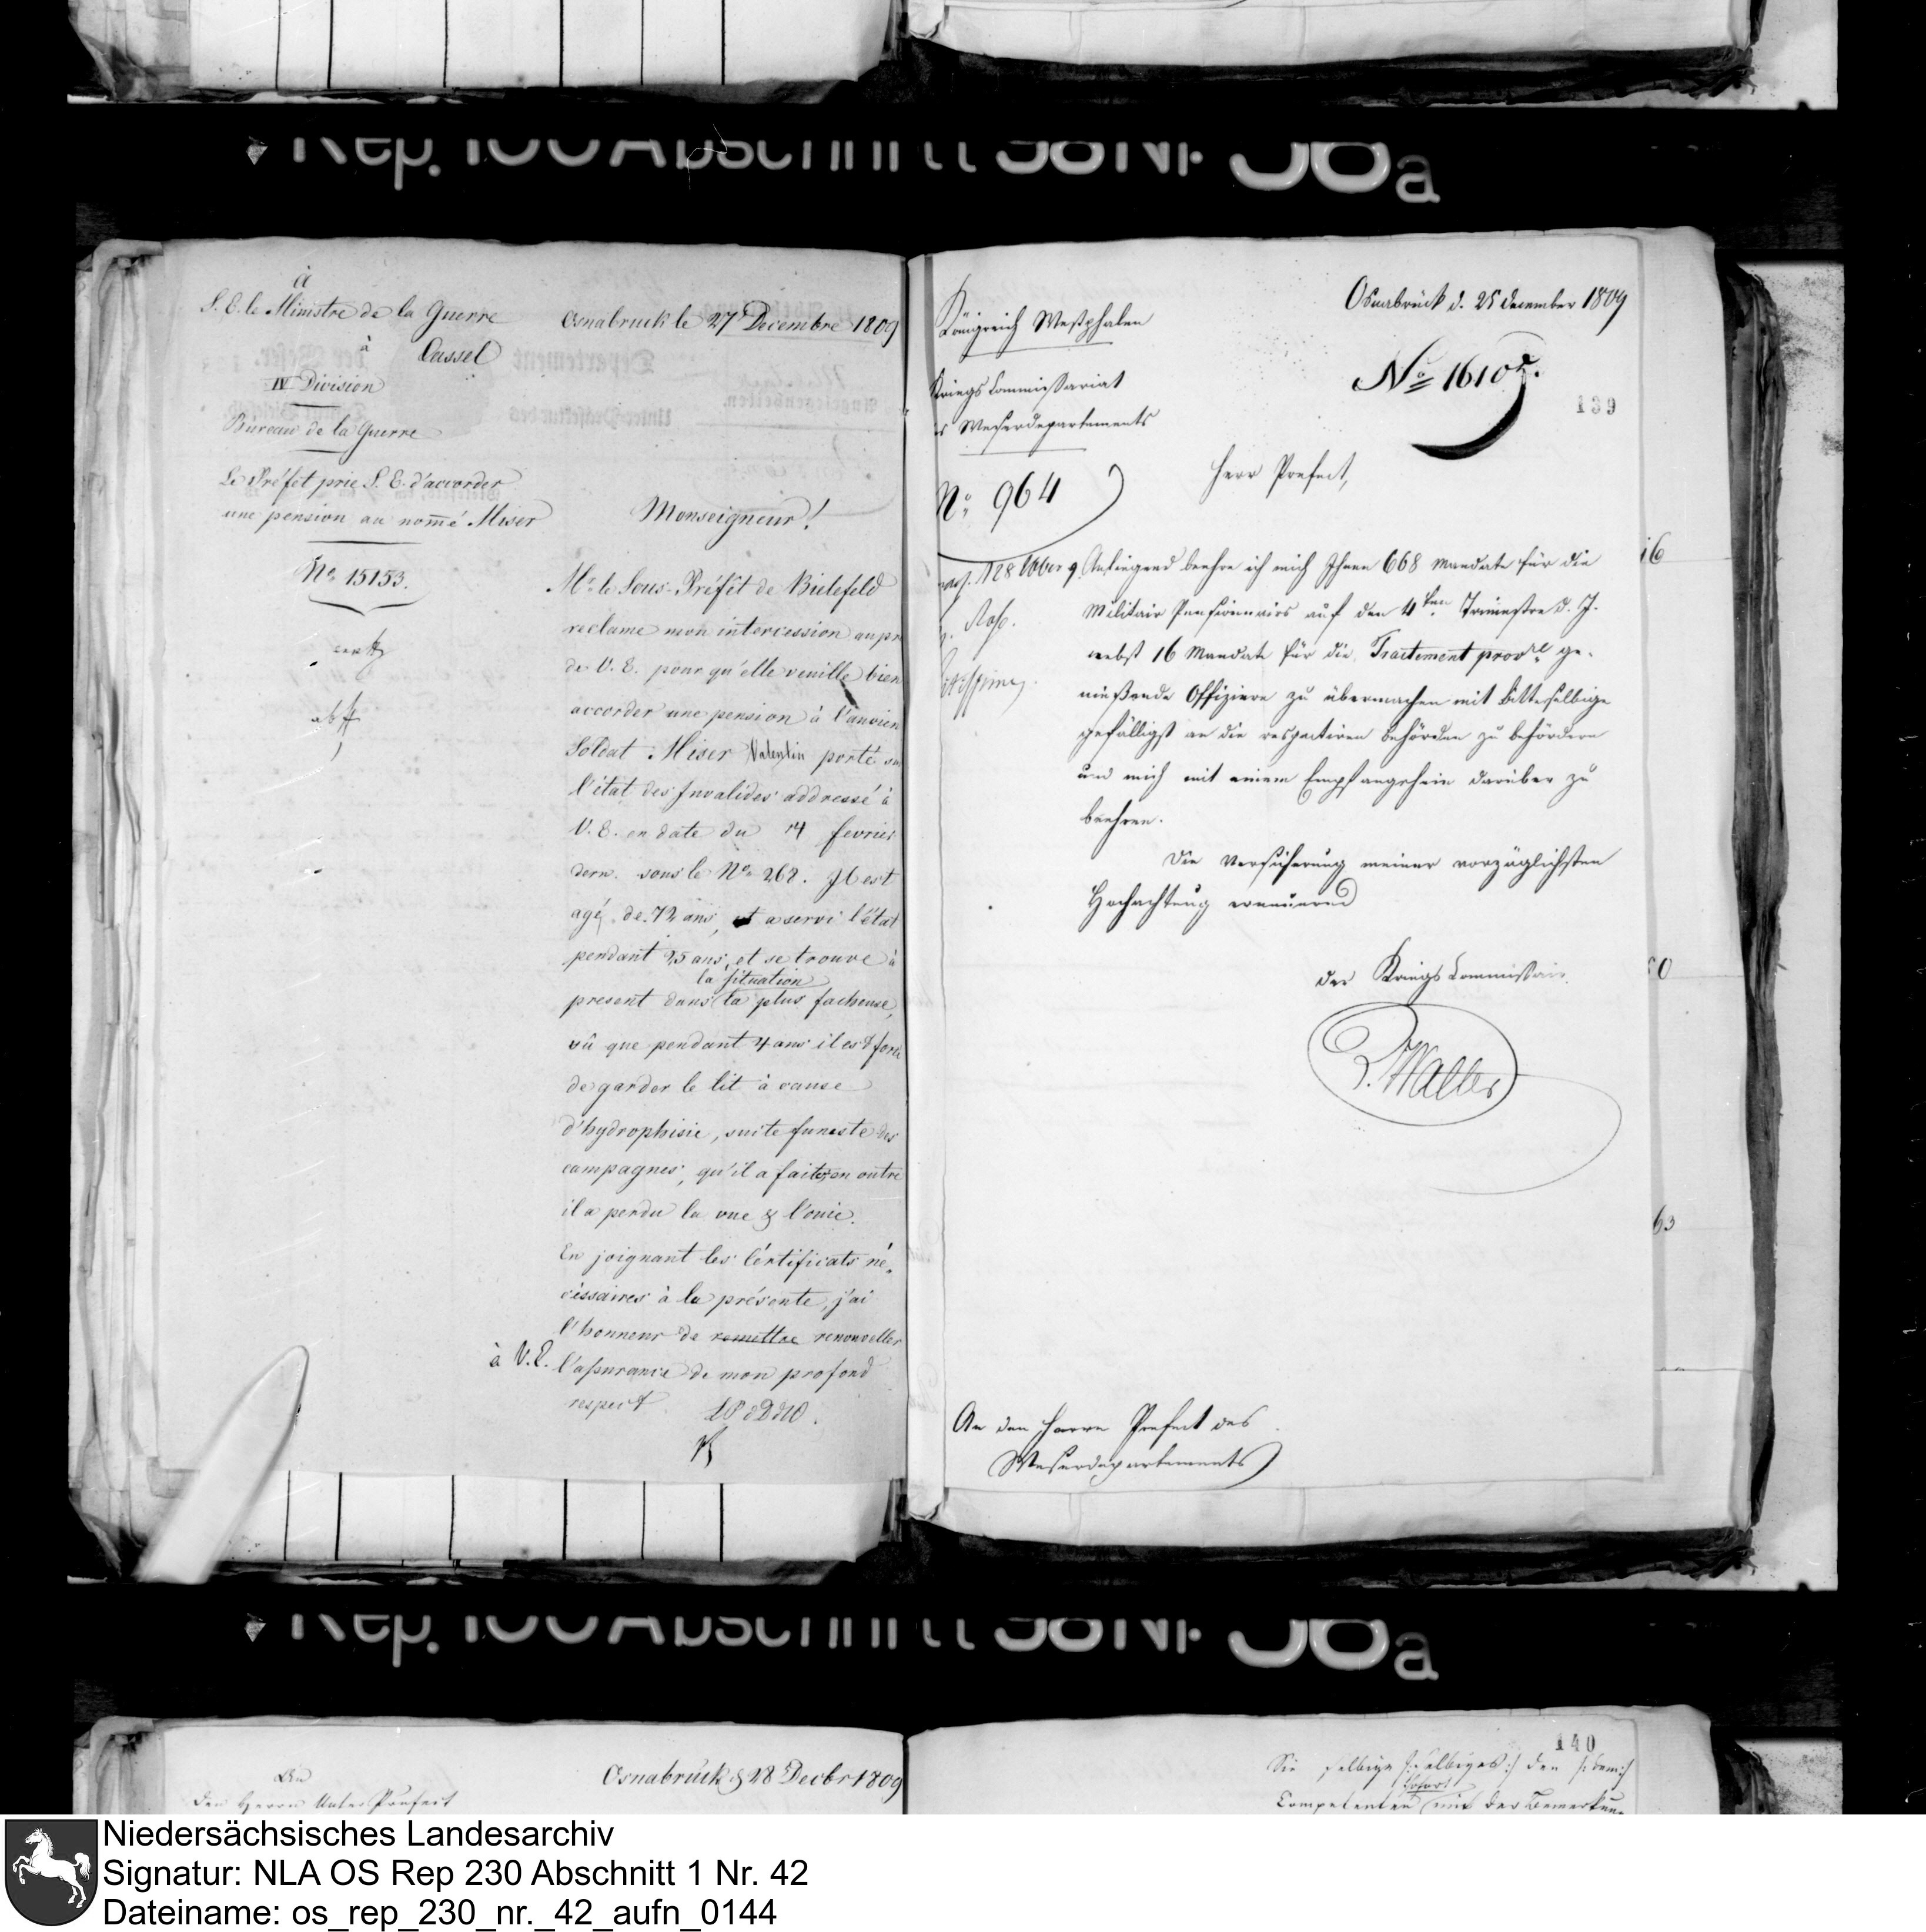 Rep. 100 Abschnitt 58 Nr 38a
à
S. E. le Ministre de la Guerre
à Cassel
IV Division
Bureau de la Guerre
Le Préfet prie S. E. d'accorder
une pension au nommé Miser
No 15153.
Osnabruck le 27 Decembre 1809
Monseigneur!
Mr. le Sous-Préfét de Bielefeld
réclame mon intercession aupr
de V. E. pour qu'elle veuille bien
accorder une pension à l'ancien
Soldat Miser Valentin porté su
l'état des Invalides addressé à
V. E. en date du 14 fevrier
dern. sous le No. 268. Il est
agé de 72 ans, et a servi l'état
pendant 25 ans, et se trouve à
la situation
present dans la plus facheuse,
vû que pendant 4 ans il est forc
de garder le lit à cause
d'hydrophisie, suite funeste des
campagnes, qu'il a faites, en outre
il a perdu la vue & l'ouie.
En joignant les Cértificats né-
céssaires à la présente, j'ai
l'honneur de remettre renouveller
à V. E. l'assurance de mon profond
respect
Osnabrück d. 25 december 1809
Königreich Westphalen
Kriegs Commissariat
s Weserdepartements
No. 964
No 16102.
139
Herr Prefect,
Anliegend beehre ich mich Ihnen 668 Mandate für die
Militair Pensionairs auf den 4ten Trimestre d. J.
nebst 16 Mandate für die Traitement provre ge-
nießende Offiziere zu übermachen mit bitte selbige
gefälligst an die respectiven Behörden zu befördern
und mich mit einem Empfangschein darüber zu
beehren.
Die Versicherung meiner vorzüglichsten
Hochachtung erneuernd
der Kriegs Commissair
An den Herrn Prefect des
Weserdepartements
16
63
Rep. 100 Abschnitt 58 Nr 38a
An
Den Herrn Unter Praefect
Osnabrück d 28 Decbr 1809
140
Niedersächsisches Landesarchiv
Signatur: NLA OS Rep 230 Abschnitt 1 Nr. 42
Dateiname: os_rep_230_nr._42_aufn_0144